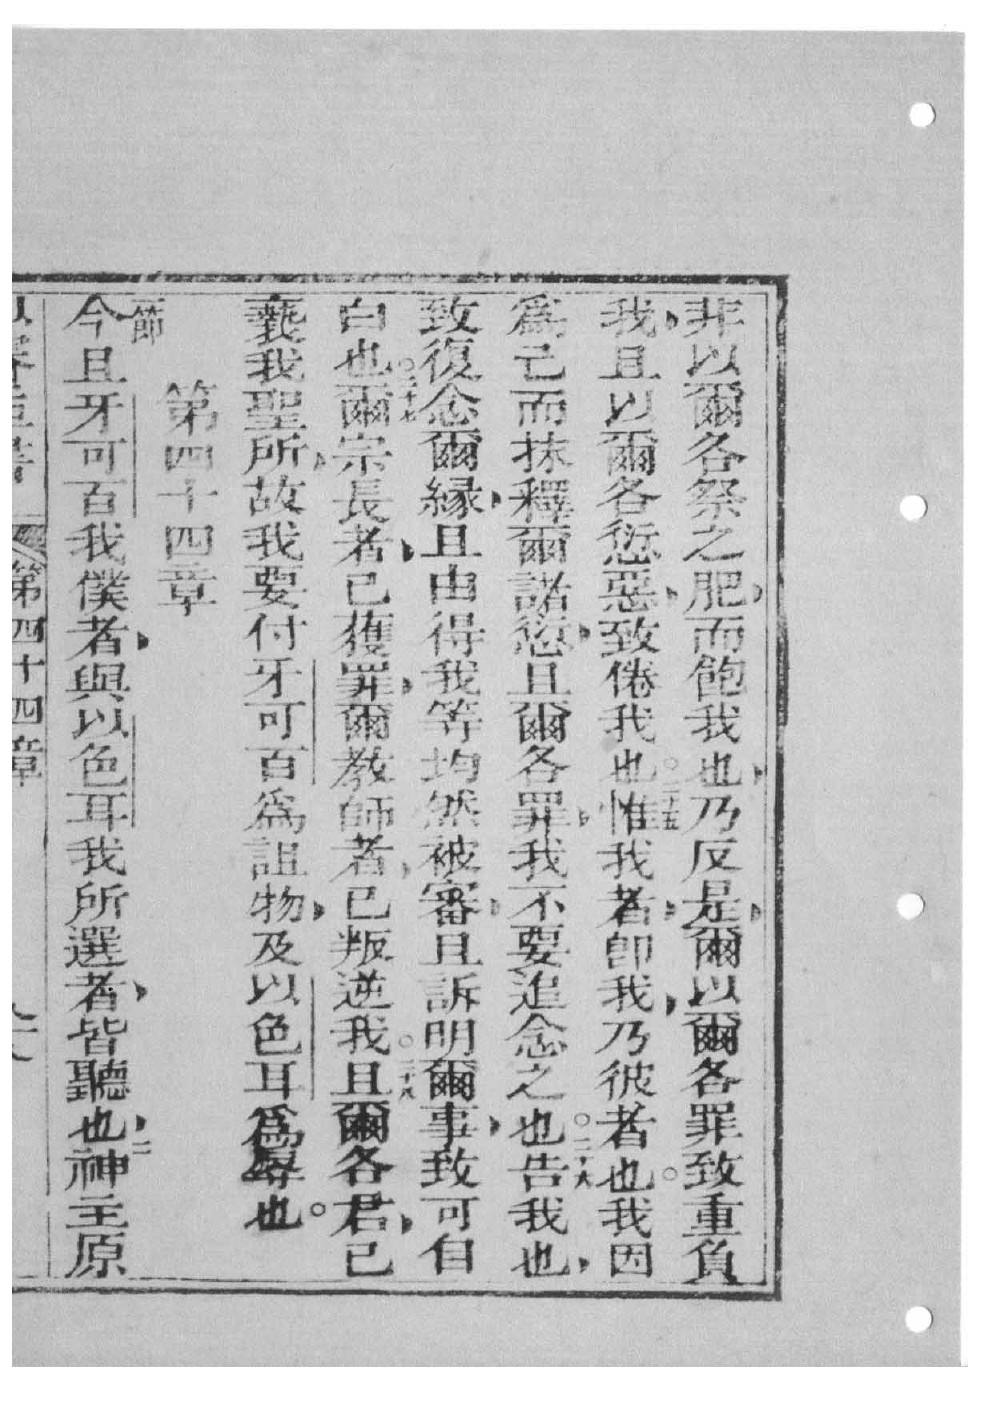 非以爾各祭之肥而飽我也乃反是爾以爾各罪致重負
我且以爾各愆惡致倦我也○二十五惟我者卽我乃彼者也○我因
爲己而抹釋爾諸愆且爾各罪我不要追念之也○二十六告我也
致復念爾緣且由得我等均然被審且訴明爾事致可自
白也○二十七爾宗長者已獲罪爾教師者已叛逆我○二十八且爾各君已
褻我聖所故我要付牙可百爲詛物及以色耳爲辱也○
第四十四章
一節今且牙可百我僕者與以色耳我所選者皆聽也二神主原
第四十四章